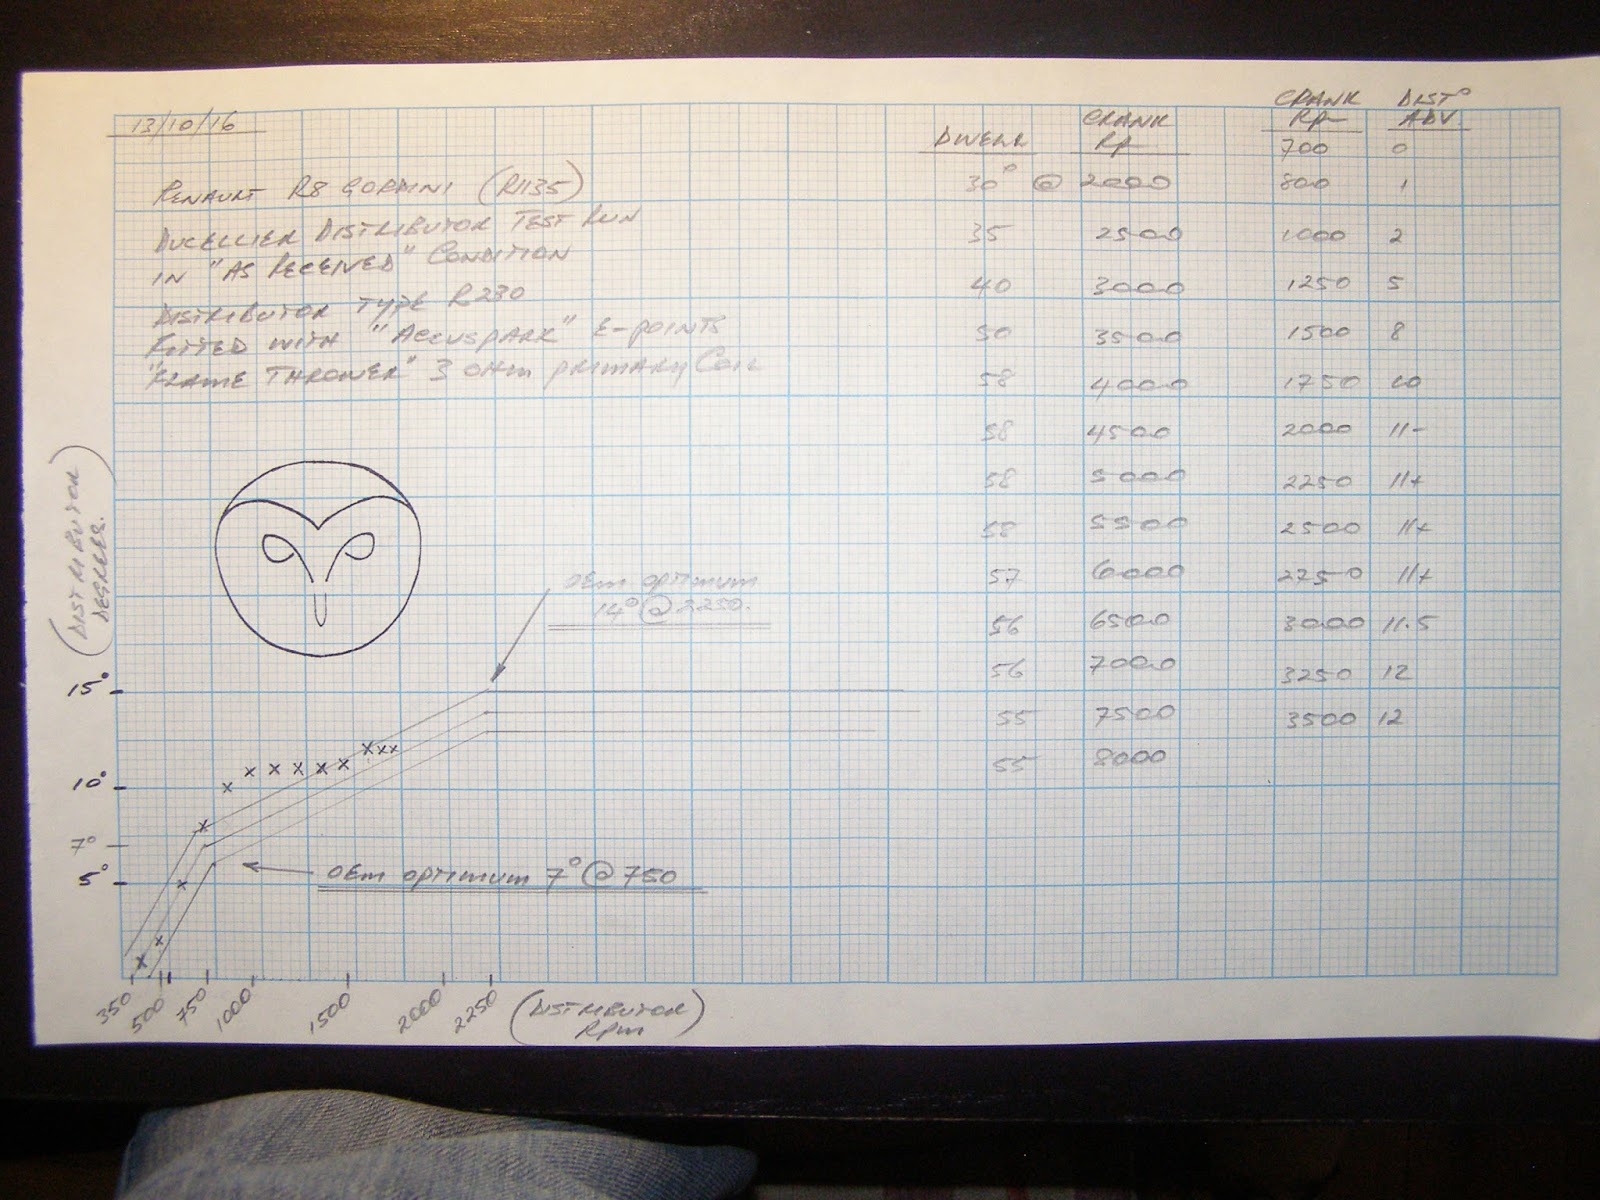 13/10/16
RENAULT R8 GORDINI (R1135)
DUCELLIER DISTRIBUTOR TEST RUN
IN "AS RECEIVED" CONDITION
DISTRIBUTOR TYPE R230
FITTED WITH "ACCUSPARK" E-POINTS
"FLAME THROWER" 3 OHM PRIMARY COIL
DWELL CRANK RPM
30° @ 2000
35 2500
40 3000
50 3500
58 4000
58 4500
58 5000
58 5500
57 6000
56 6500
56 7000
55 7500
55 8000
CRANK RPM DIST° ADV.
700 0
800 1
1000 2
1250 5
1500 8
1750 10
2000 11-
2250 11+
2500 11+
2750 11+
3000 11.5
3250 12
3500 12
(DISTRIBUTOR
DEGREES.)
OEM OPTIMUM
14° @ 2250.
15°
10°
7°
5°
OEM OPTIMUM 7° @ 750
350 500 750 1000 1500 2000 2250
(DISTRIBUTOR
RPM)